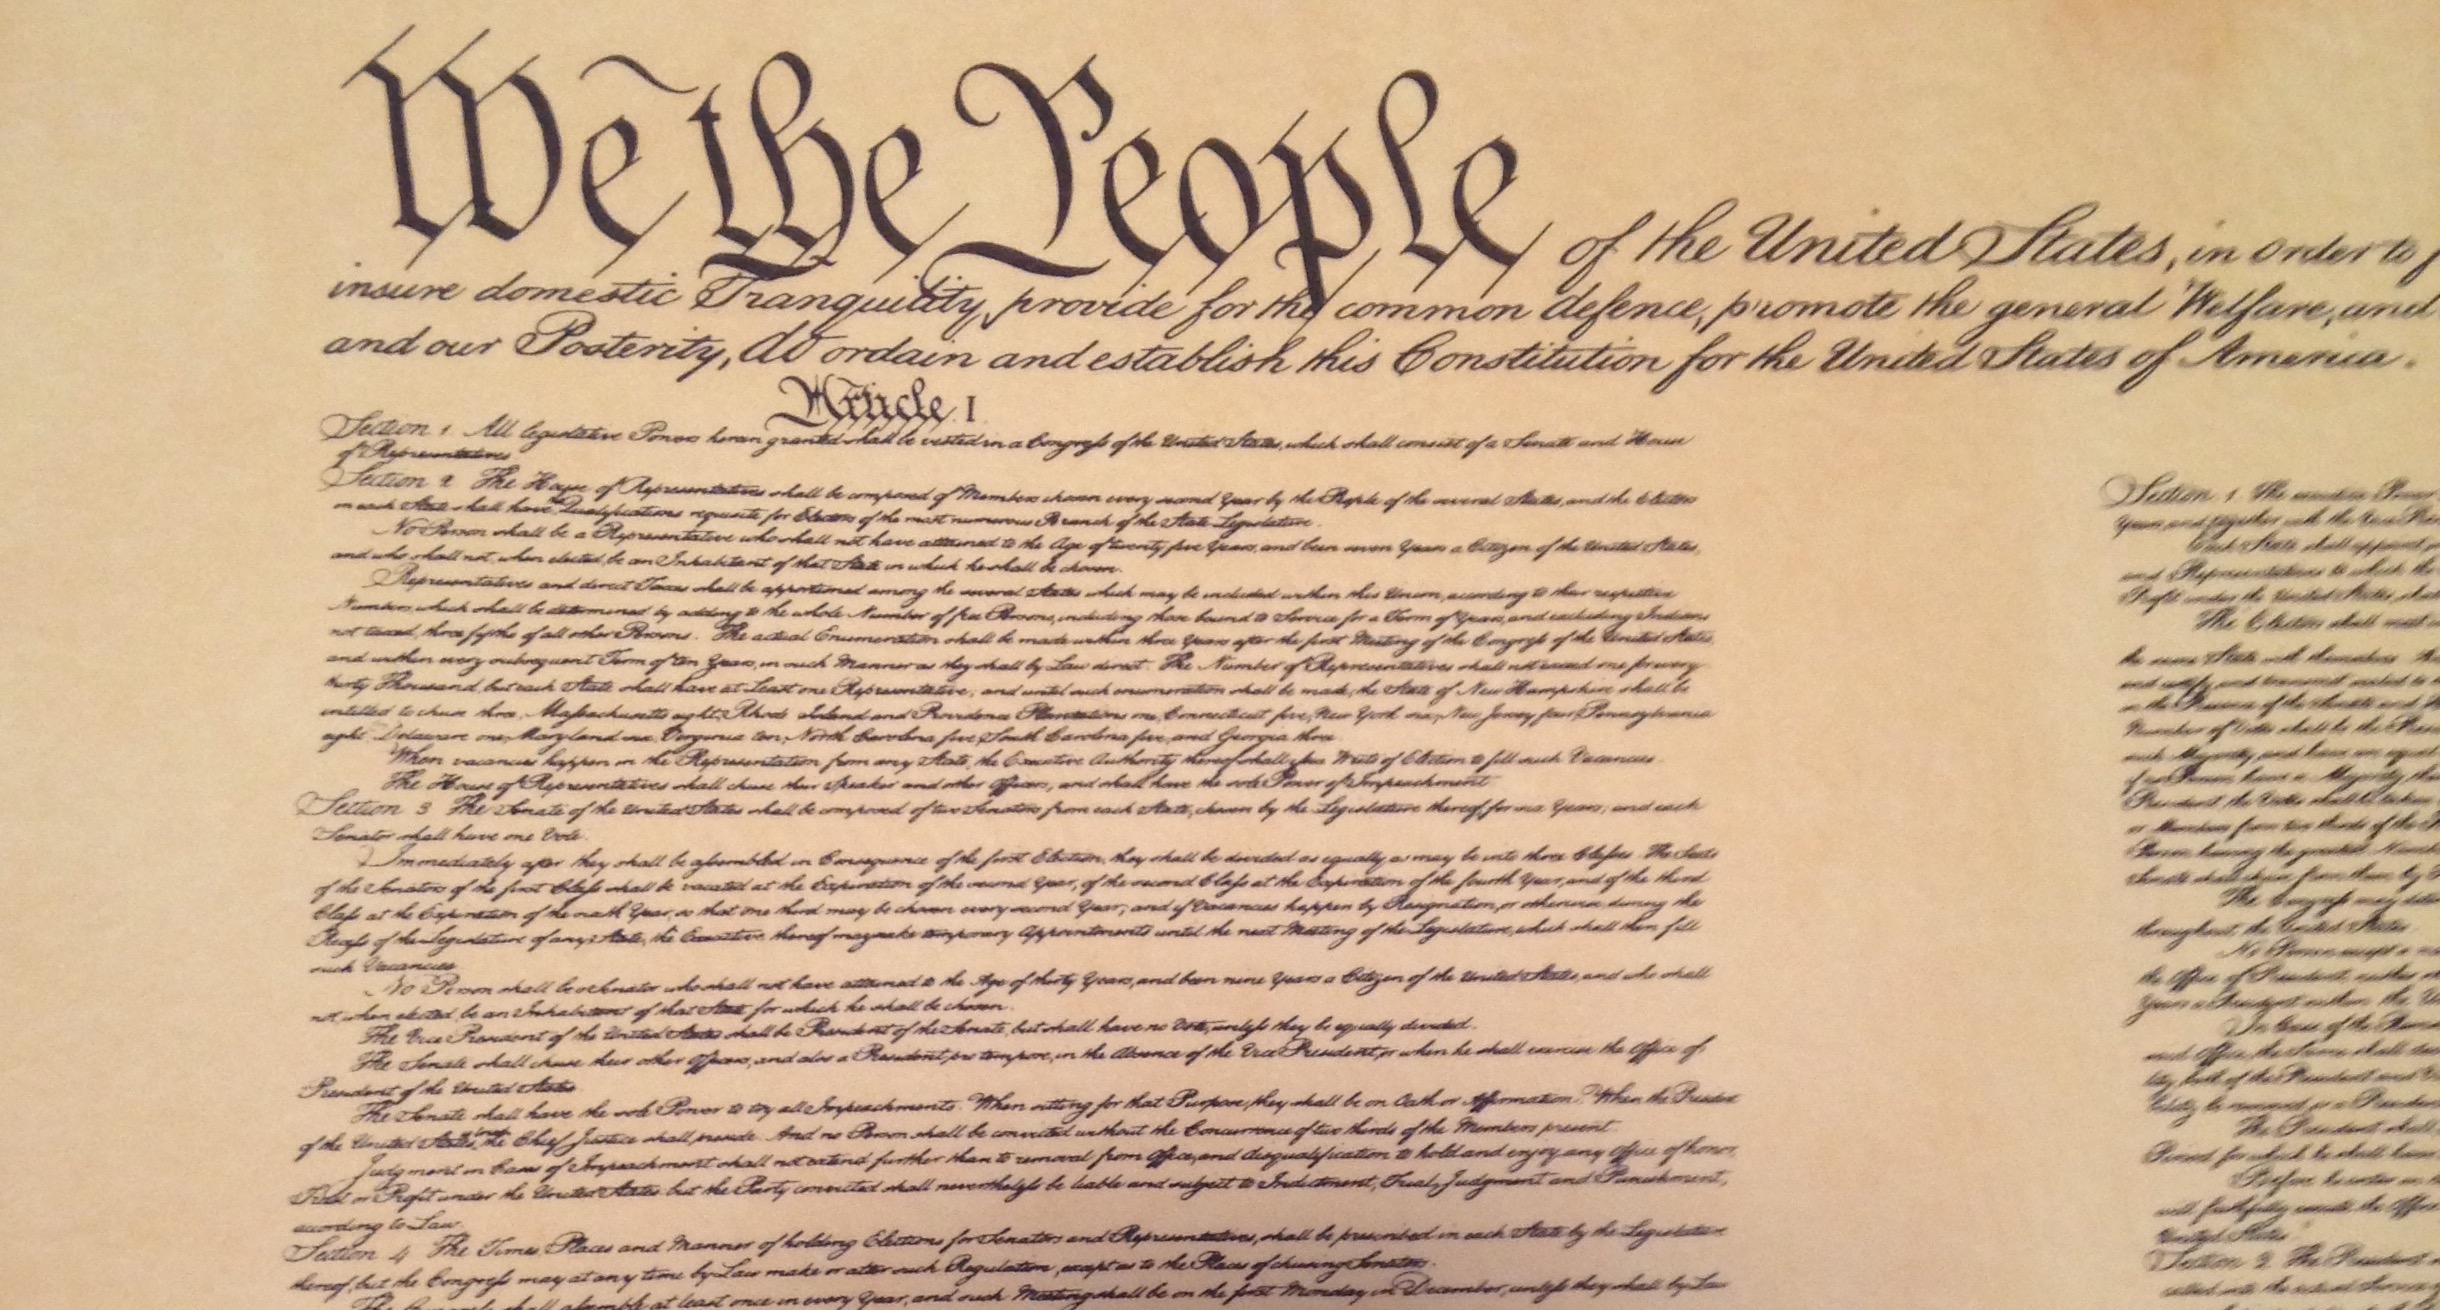 We the People of the United States, in Order to
insure domestic Tranquility, provide for the common defence, promote the general Welfare, and
and our Posterity, do ordain and establish this Constitution for the United States of America.
Article. I.
Section 1 All legislative Powers herein granted shall be vested in a Congress of the United States, which shall consist of a Senate and House
of Representatives
Section 2 The House of Representatives shall be composed of Members chosen every second Year by the People of the several States, and the Electors
in each State shall have the Qualifications requisite for Electors of the most numerous Branch of the State Legislature.
No Person shall be a Representative who shall not have attained to the Age of twenty five Years, and been seven Years a Citizen of the United States,
and who shall not, when elected, be an Inhabitant of that State in which he shall be chosen.
Representatives and direct Taxes shall be apportioned among the several States which may be included within this Union, according to their respective
Numbers, which shall be determined by adding to the whole Number of free Persons, including those bound to Service for a Term of Years, and excluding Indians
not taxed, three fifths of all other Persons. The actual Enumeration shall be made within three Years after the first Meeting of the Congress of the United States,
and within every subsequent Term of ten Years, in such Manner as they shall by Law direct. The Number of Representatives shall not exceed one for every
thirty Thousand, but each State shall have at Least one Representative; and until such enumeration shall be made, the State of New Hampshire shall be
entitled to chuse three, Massachusetts eight, Rhode Island and Providence Plantations one, Connecticut five, New York six, New Jersey four, Pennsylvania
eight, Delaware one, Maryland six, Virginia ten, North Carolina five, South Carolina five, and Georgia three.
When vacancies happen in the Representation from any State, the Executive Authority thereof shall issue Writs of Election to fill such Vacancies.
The House of Representatives shall chuse their Speaker and other Officers; and shall have the sole Power of Impeachment
Section 3 The Senate of the United States shall be composed of two Senators from each State, chosen by the Legislature thereof, for six Years; and each
Senator shall have one Vote.
Immediately after they shall be assembled in Consequence of the first Election, they shall be divided as equally as may be into three Classes. The Seats
of the Senators of the first Class shall be vacated at the Expiration of the second Year, of the second Class at the Expiration of the fourth Year, and of the third
Class at the Expiration of the sixth Year, so that one third may be chosen every second Year; and if Vacancies happen by Resignation, or otherwise, during the
Recess of the Legislature of any State, the Executive thereof may make temporary Appointments until the next Meeting of the Legislature, which shall then fill
such Vacancies
No Person shall be a Senator who shall not have attained to the Age of thirty Years, and been nine Years a Citizen of the United States, and who shall
not, when elected, be an Inhabitant of that State for which he shall be chosen.
The Vice President of the United States shall be President of the Senate, but shall have no Vote, unless they be equally divided.
The Senate shall chuse their other Officers, and also a President pro tempore, in the Absence of the Vice President, or when he shall exercise the Office of
President of the United States
The Senate shall have the sole Power to try all Impeachments. When sitting for that Purpose, they shall be on Oath or Affirmation. When the President
of the United States is tried, the Chief Justice shall preside: And no Person shall be convicted without the Concurrence of two thirds of the Members present.
Judgment in Cases of Impeachment shall not extend further than to removal from Office, and disqualification to hold and enjoy any Office of honor,
Trust or Profit under the United States: but the Party convicted shall nevertheless be liable and subject to Indictment, Trial, Judgment and Punishment,
according to Law.
Section 4 The Times, Places and Manner of holding Elections for Senators and Representatives, shall be prescribed in each State by the Legislature
thereof; but the Congress may at any time by Law make or alter such Regulation, except as to the Places of chusing Senators.
The Congress shall assemble at least once in every Year, and such Meeting shall be on the first Monday in December, unless they shall by Law
Section 1 The executive Power
Each State shall appoint
and Representatives to which the
Profit under the United States, shall
The Electors shall meet
the same State with themselves
and certify, and transmit sealed to
in the Presence of the Senate and
Number of Votes shall be the
such Majority, and have an equal
if no Person have a Majority, then
President, the Votes shall be taken
or Members from two thirds of the
Person having the greatest Number
Senate shall chuse from them by
The Congress may
throughout the United States.
No Person except a
the Office of President; neither
Years a Resident within the
In Case of the
said Office, the Same shall
both of the President and
The President shall
Period for which he shall have
Before he enter
will faithfully execute the Office
United States
Section 2 The President
called into the actual Service